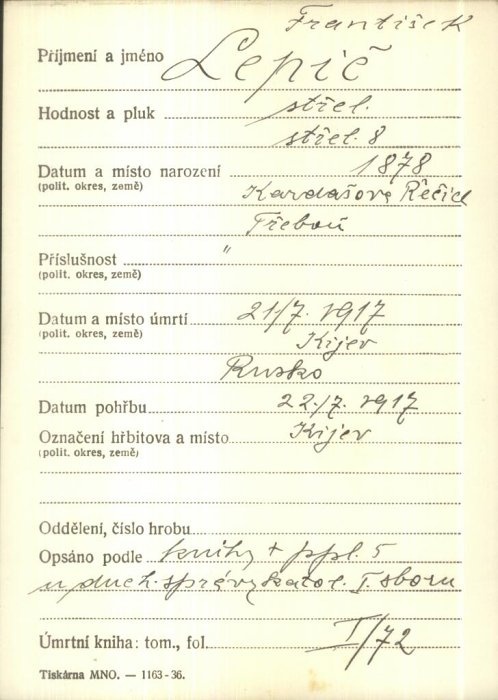 František
Příjmení a jméno Lepič
Hodnost a pluk střel.
střel. 8
Datum a místo narození 1878
(polit. okres, země) Kardašova Řečice
Třeboň
Příslušnost "
(polit. okres, země)
Datum a místo úmrtí 21/7. 1917
(polit. okres, země) Kijev
Rusko
Datum pohřbu 22./7. 1917
Označení hřbitova a místo Kijev
(polit. okres, země)
Oddělení, číslo hrobu
Opsáno podle knihy + ppl. 5
u duch. správy katol. I. sboru
Úmrtní kniha: tom., fol. I/72
Tiskárna MNO. — 1163-36.